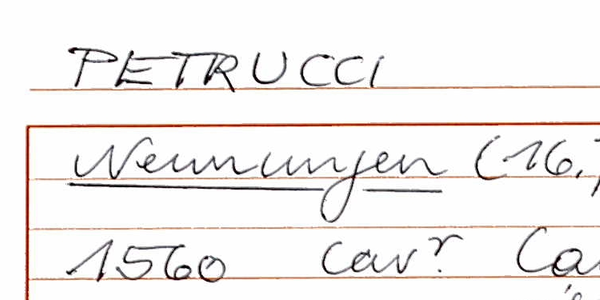 PETRUCCI
Nennungen (16.
1560 Cav.r Ca